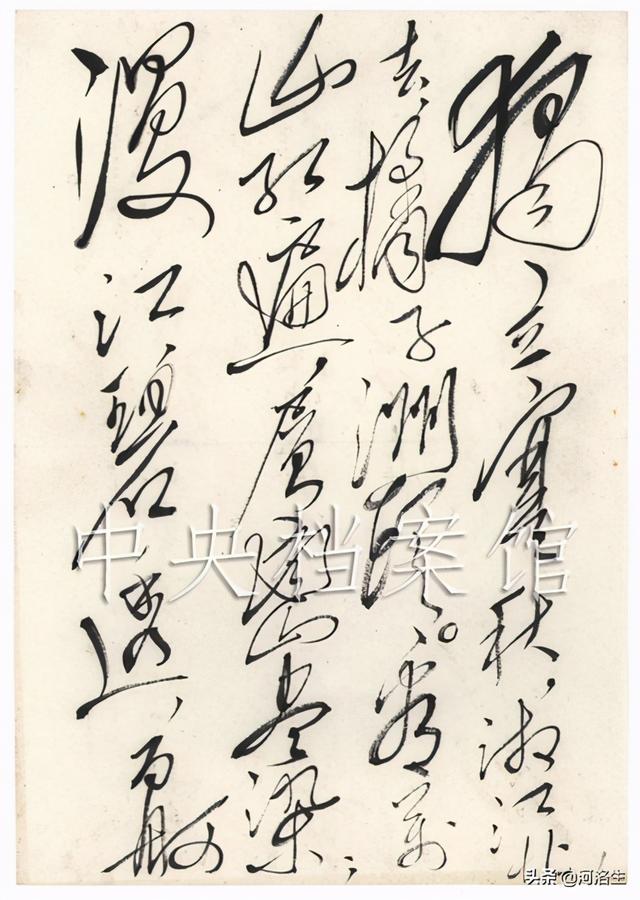 獨立寒秋，湘江北
去，橘子洲頭。看萬
山红遍，層巒尽染；
漫江碧透，百舸
中央档案馆
头条 @河洛生